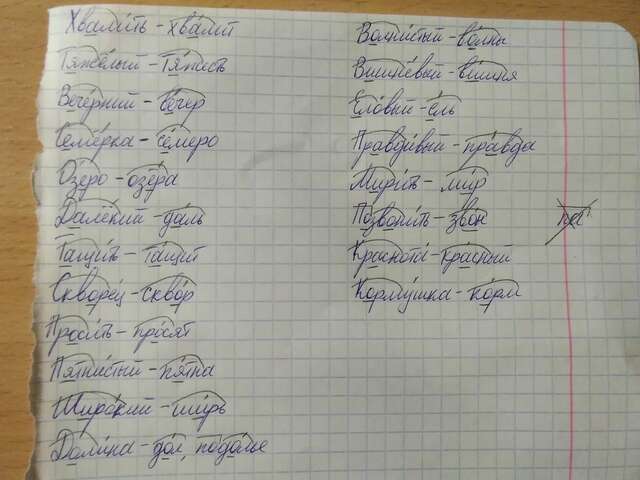 Хвалить - хвалит
Тяжёлый - тяжесть
Вечерний - вечер
Семёрка - семеро
Озеро - озёра
Далёкий - даль
Тащить - тащит
Скворец - сквор
Просить - просят
Пятнистый - пятна
Широкий - ширь
Долина - дол, подолье
Волнистый - волны
Вишнёвый - вишня
Еловый - ель
Правдивый - правда
Мирить - мир
Позвонить - звон
Красноты - красный
Кормушка - корм